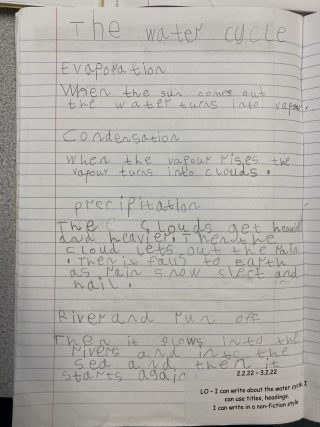 The water cycle
Evaporation
When the sun comes out
the water turns into vapour.
Condensation
when the vapour rises the
vapour turns into clouds.
precipitation
The clouds get heavier
and heavier. Then the
cloud lets out the rain
. Then it falls to earth
as rain snow sleet and
hail.
River and run off
Then it flows into the
rivers and into the
sea and then it
starts again
2.2.22 - 3.2.22
LO - I can write about the water cycle. I
can use titles, headings.
I can write in a non-fiction style